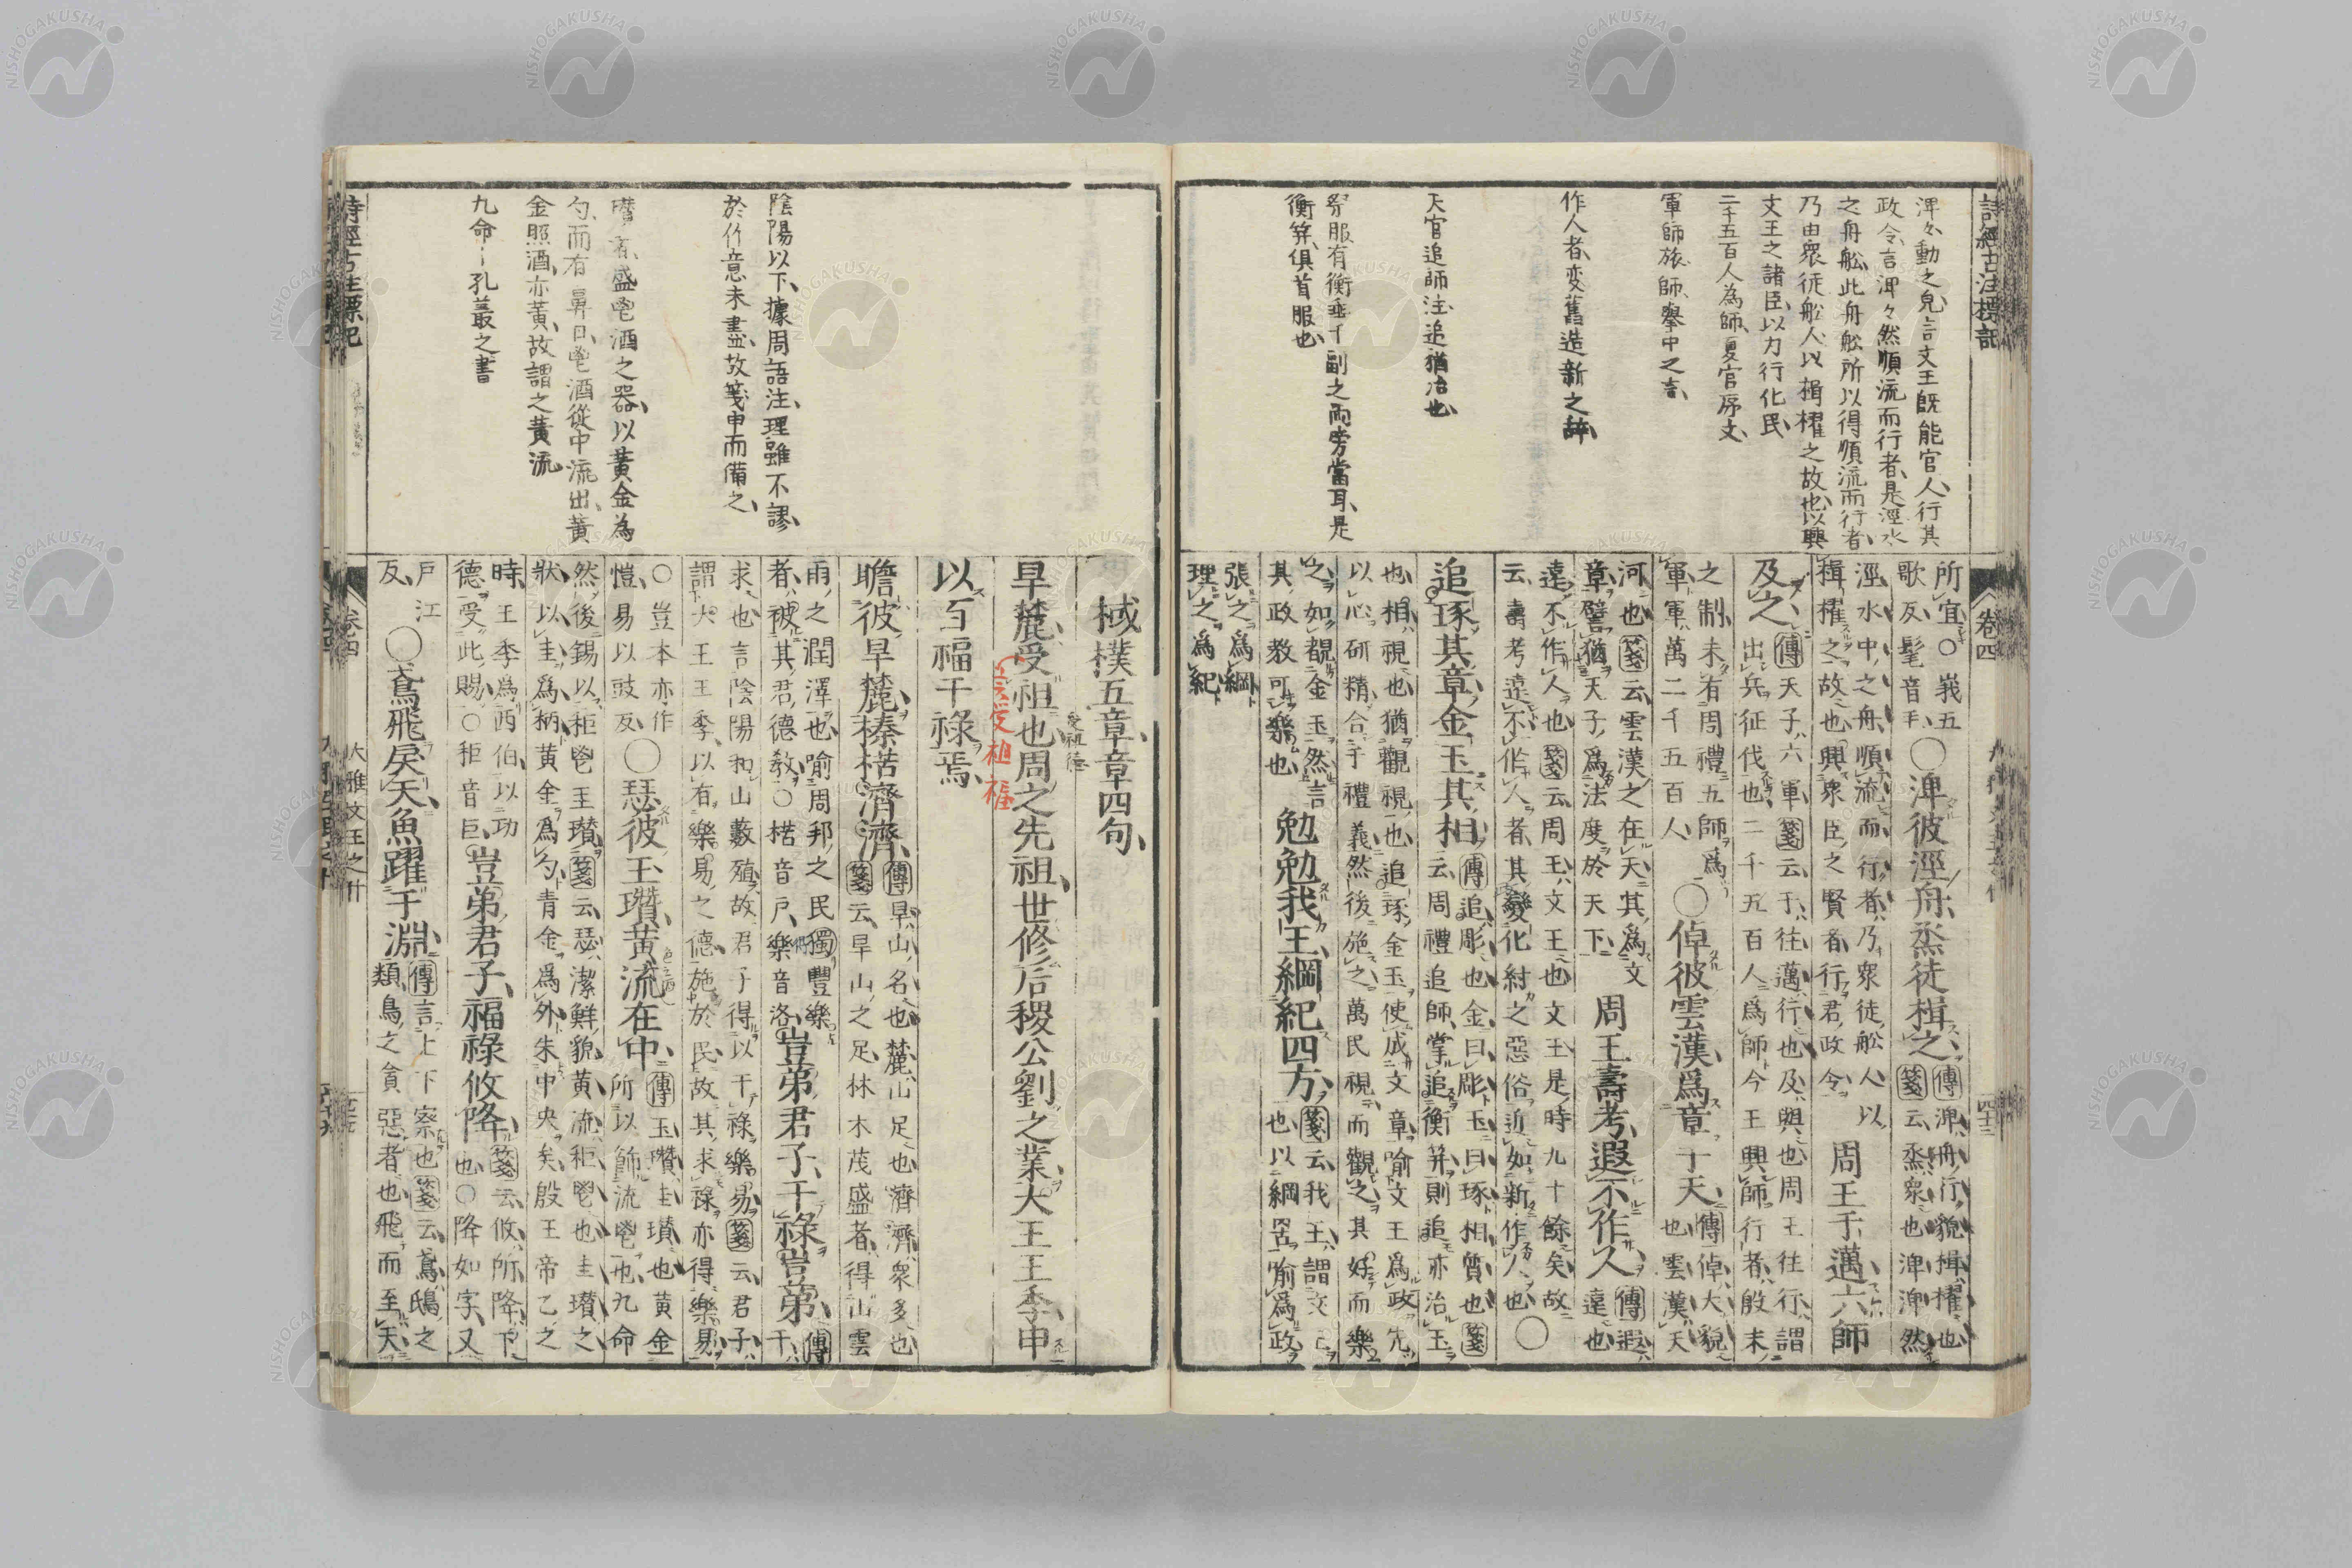 詩經古注標記
渒々動之皃言文王既能官人行其
政令言渒々然順流而行者是涇水
之舟舩此舟舩所以得順流而行者
乃由衆徒舩人以楫櫂之故也以興
文王之諸臣以力行化民
二千五百人為師夏官序文
軍師旅師擧中之言
作人者変舊造新之辞
天官追師注追猶冶也
祭服有衡垂于副之両旁當耳是
衡笄俱首服也
卷四
四十三
所宜○峩五
歌反髦音毛○渒彼涇舟烝徒楫之傳渒舟行貌楫櫂也
箋云烝衆也渒渒然
涇水中之舟順流而行者乃衆徒舩人以
楫櫂之故也興衆臣之賢者行君政令周王于邁六師
及之傳天子六軍箋云于往邁行也及與也周王往行謂
出兵征伐也二千五百人爲師今王興師行者殷末
之制未有周禮五師爲
軍軍萬二千五百人○倬彼雲漢爲章于天傳倬大貌
也雲漢天
河也箋云雲漢之在天其爲文
章譬猶天子爲法度於天下周王壽考遐不作人傳遐
遠也
遠不作人也箋云周王文王也文王是時九十餘矣故
云壽考遠不作人者其變化紂之惡俗近如新作人也○
追琢其章金玉其相傳追彫也金曰彫玉曰琢相質也箋
云周禮追師掌追衡笄則追亦治玉
也相視也猶觀視也追琢金玉使成文章喻文王爲政先
以心研精合于禮義然後施之萬民視而觀之其好而樂
之如覩金玉然言
其政教可樂也勉勉我王綱紀四方箋云我王謂文王
也以綱罟喻爲政
張之爲綱
理之爲紀
棫樸五章章四句
旱麓受祖也周之先祖世修后稷公劉之業大王王季申
受祖德
一云受祖祉
以百福干祿焉
瞻彼旱麓榛楛濟濟傳旱山名也麓山足也濟濟衆多也
箋云旱山之足林木茂盛者得山雲
雨之潤澤也喻周邦之民獨豐樂
者被其君德教○楛音戶樂音洛豈弟君子干祿豈弟傳
干
求也言陰陽和山藪殖故君子得以干祿樂易箋云君子
謂大王王季以有樂易之德施於民故其求祿亦得樂易
○豈本亦作
愷易以豉反○瑟彼玉瓚黃流在中傳玉瓚圭瓚也黃金
所以飾流鬯也九命
然後錫以秬鬯圭瓚箋云瑟潔鮮貌黃流秬鬯也圭瓚之
狀以圭爲柄黃金爲勺青金爲外朱中央矣殷王帝乙之
時王季爲西伯以功
德受此賜○秬音巨豈弟君子福祿攸降箋云攸所降下
也○降如字又
戶江
反○鳶飛戾天魚躍于淵傳言上下察也箋云鳶鴟之
類鳥之貪惡者也飛而至天
陰陽以下據周語注理雖不謬
於作意未盡故箋申而備之
瓚者盛鬯酒之器以黃金為
勺而有鼻口鬯酒從中流出黃
金照酒亦黃故謂之黃流
九命─孔叢之書
卷四
大雅文王之什